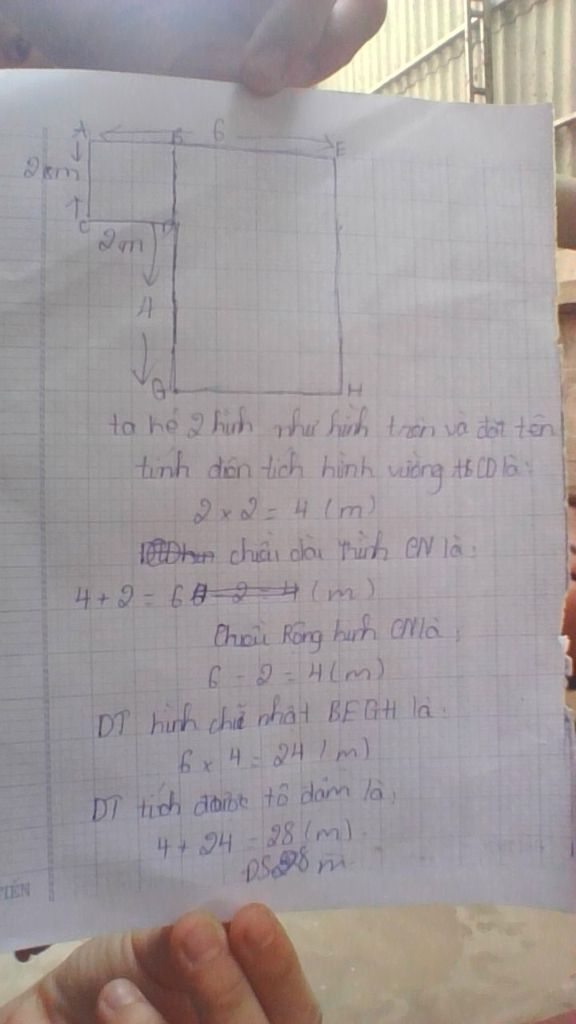 A B 6 E
2cm
C D
2m
4
G H
ta kẻ 2 hình như hình trên và đặt tên
tính diện tích hình vuông ABCD là:
2 × 2 = 4 (m)
chiều dài hình CN là:
4 + 2 = 6 (m)
Chiều Rộng hình CN là:
6 - 2 = 4 (m)
DT hình chữ nhật BEGH là:
6 × 4 = 24 (m)
DT tích được tô đậm là:
4 + 24 = 28 (m).
ĐS 28 m
TIẾN